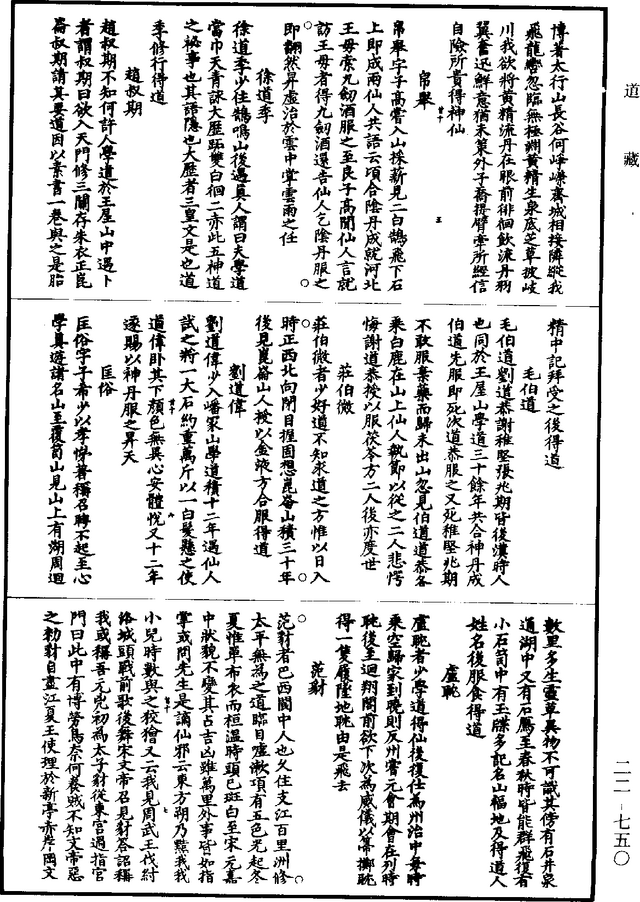 道藏
博著太行山長谷何崢嶸齊城相接隣縱我
飛龍轡忽臨無極淵黃精生泉底芝草披岐
川我欲將黃精流丹在眼前徘徊飲流丹羽
翼奮迅鮮意猶未策外子喬提臂牽所經信
自險所貴得神仙
帛舉
帛舉字子高嘗入山採薪見二白鵠飛下石
上即成兩仙人共語云頃合陰丹成就河北
王母索九劒酒服之至良子高聞仙人言詑
訪王母者得九劒酒還告仙人乞陰丹服之
即翻然昇虛治於雲中掌雲雨之任
徐道季
徐道季少住鵠鳴山後遇真人謂曰夫學道
當巾天青詠大歷跖雙白徊二赤此五神道
之祕事也其語隱也大歷者三皇文是也道
季修行得道
趙叔期
趙叔期不知何許人學道於王屋山中遇卜
者謂叔期曰欲入天門修三關存朱衣正崑
崙叔期請其要道因以素書一卷與之是胎
精中記拜受之後得道
毛伯道
毛伯道劉道恭謝稚堅張兆期皆後漢時人
也同於王屋山學道三十餘年共合神丹成
伯道先服即死次道恭服之又死稚堅兆期
不敢服棄藥而歸未出山忽見伯道道恭各
乘白鹿在山上仙人執節以從之二人悲愕
悔謝道恭授以服茯苓方二人後亦度世
莊伯微
莊伯微者少好道不知求道之方惟以日入
時正西北向閉目握固想崑崙山積三十年
後見崑崙山人授以金液方合服得道
劉道偉
劉道偉少入嶓冢山學道積十二年遇仙人
試之將一大石約重萬斤以一白髮懸之使
道偉卧其下顏色無異心安體悅又十二年
遂賜以神丹服之昇天
匡俗
匡俗字子希少以孝悌著稱召聘不起至心
學真遊諸名山至覆笥山見山上有湖周迴
數里多生靈草異物不可識其傍有石井泉
通湖中又有石鴈至春秋時皆能群飛復有
小石笥中有玉牒多記名山福地及得道人
姓名後服食得道
盧耽
盧耽者少學道得仙後復仕為州治中每時
乘空歸家到曉則反州嘗元會期會在列時
耽後至迴翔閣前欲下次為威儀以箒擲耽
得一隻履墜地耽由是飛去
范豺
范豺者巴西閬中人也久住支江百里洲修
太平無為之道臨目噓漱項有五色光起冬
夏惟單布衣而桓溫時頭已斑白至宋元嘉
中狀貌不變其占吉凶雖萬里外事皆如指
掌或問先生是謫仙邪云東方朔乃黠我我
小兒時數與之狡獪又云我見周武王伐紂
洛城頭戰前歌後舞宋文帝召見豺答詔稱
我或稱吾元兇初為太子豺從東宮過指宮
門曰此中有博勞鳥奈何養賊不知文帝惡
之勑豺自盡江夏王使殯於新亭赤岸岡文
二二-七五〇